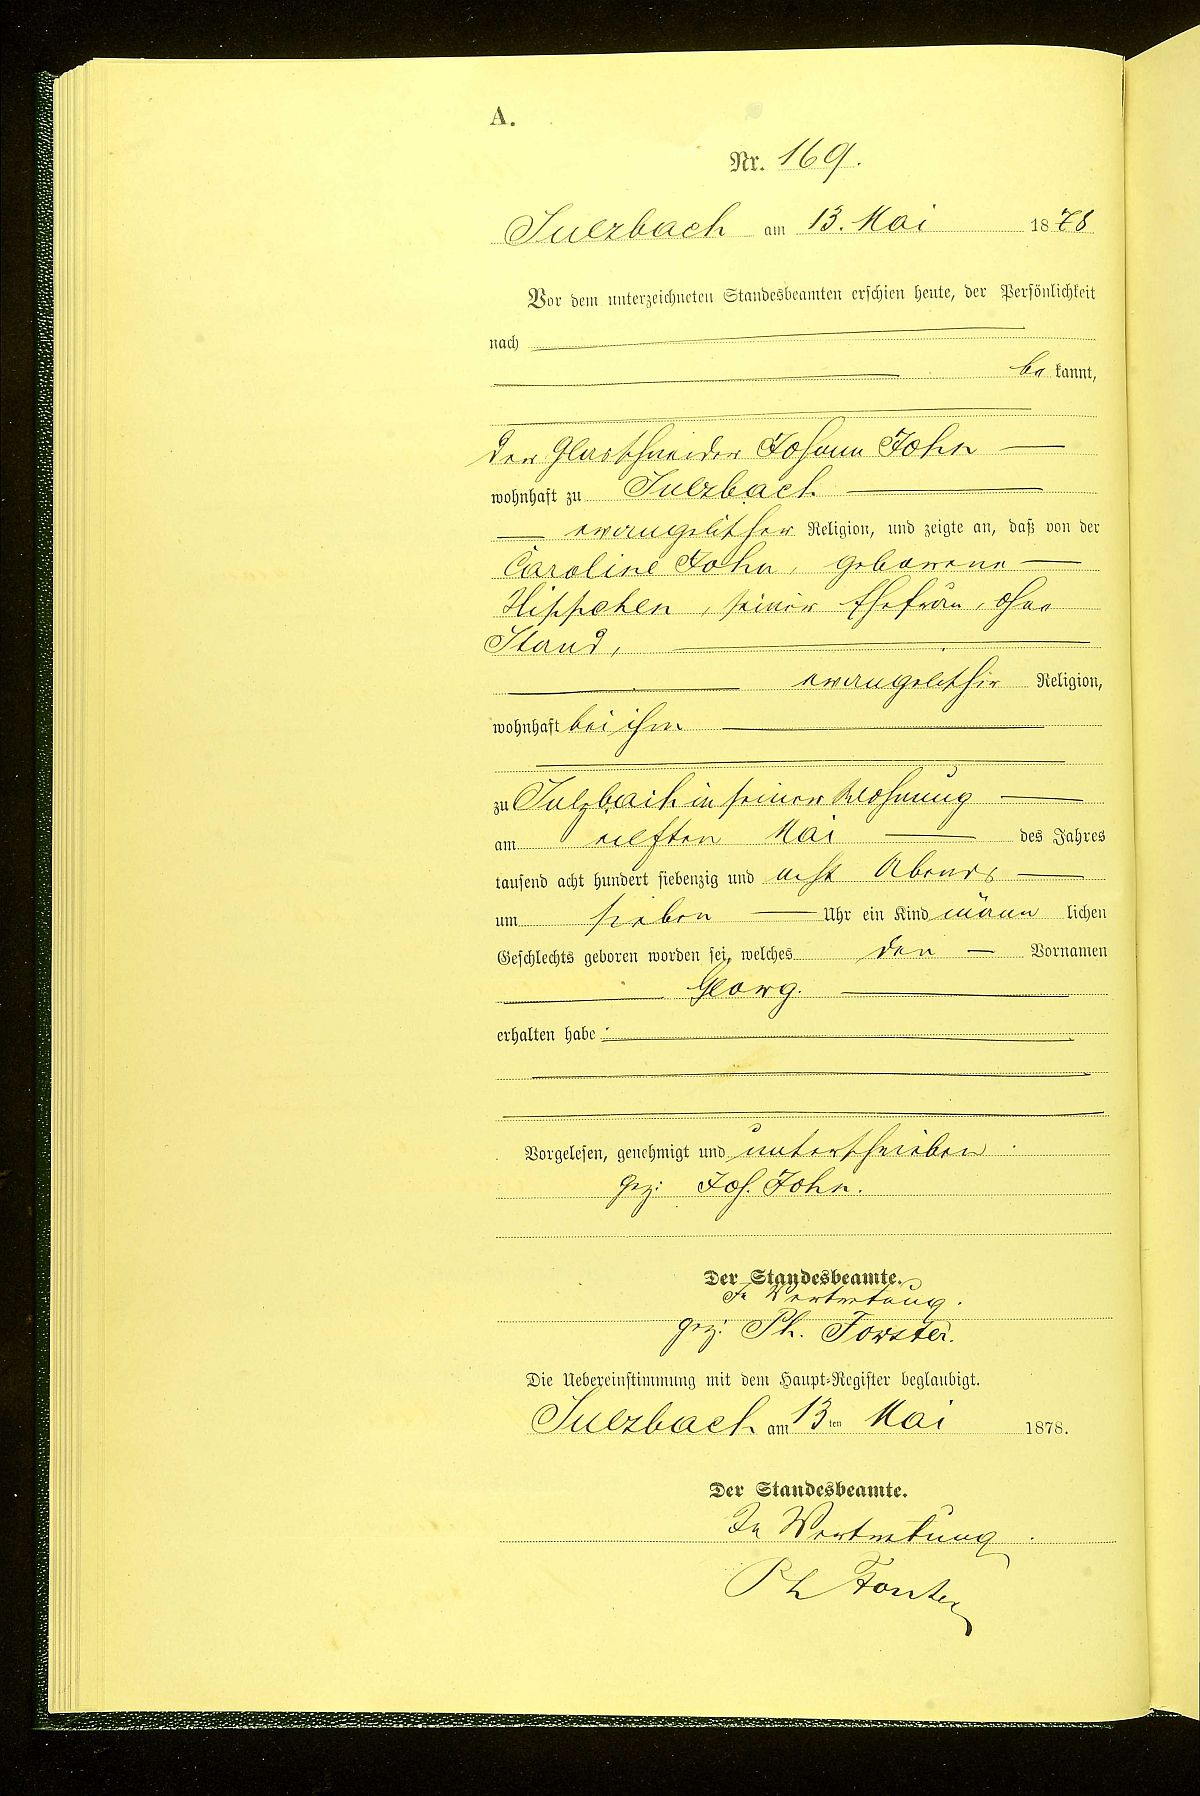 A.
Nr. 169.
Sulzbach am 13. Mai 1878
Vor dem unterzeichneten Standesbeamten erschien heute, der Persönlichkeit
nach
be kannt,
der Glasschneider Johann John
wohnhaft zu Sulzbach
evangelischer Religion, und zeigte an, daß von der
Caroline John, geborene
Hippchen, seiner Ehefrau, ohne
Stand,
evangelischer Religion,
wohnhaft bei ihm
zu Sulzbach in seiner Wohnung
am eilften Mai des Jahres
tausend acht hundert siebenzig und acht Abends
um sieben Uhr ein Kind männ lichen
Geschlechts geboren worden sei, welches den Vornamen
Georg.
erhalten habe
Vorgelesen, genehmigt und unterschrieben
gez: Joh. John.
Der Standesbeamte.
In Vertretung.
gez: Ph. Forster.
Die Uebereinstimmung mit dem Haupt-Register beglaubigt.
Sulzbach am 13ten Mai 1878.
Der Standesbeamte.
In Vertretung
Ph Forster